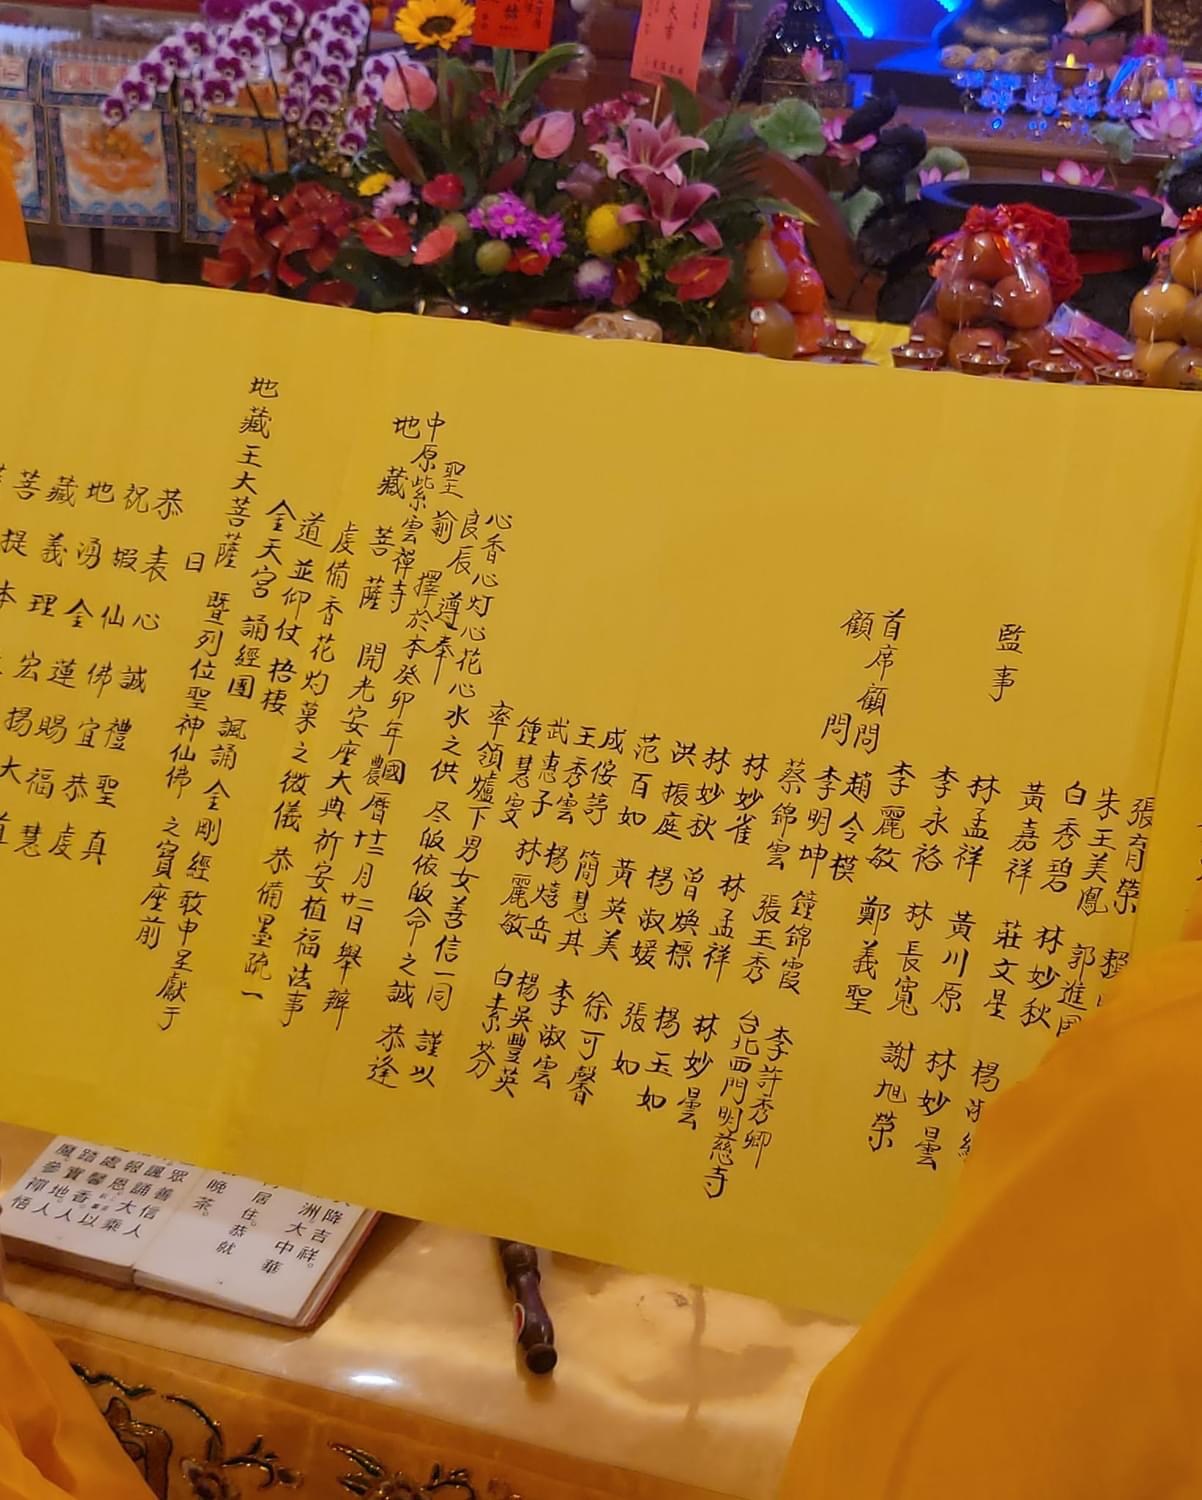 張育榮
朱王美鳳 郭進
白秀碧 林妙秋
監事 黃嘉祥 莊文星
林孟祥 黃川原 林妙曇
李永裕 林長寬 謝旭榮
首席顧問 李麗敏 鄭義聖
顧問 趙令模
李明坤 鐘錦霞 李許秀卿
蔡錦雲 張王秀 台北西門明慈寺
林妙雀 林孟祥 林妙曇
林妙秋 曾煥標 楊玉如
洪振庭 楊淑媛 張如如
范百如 黃英美 徐可馨
成侒諄 簡慧其 李淑雲
王秀雲 楊熺岳 楊吳豐英
武惠子 林麗敏 白素芬
鍾慧雯
率領爐下男女善信一同 謹以
心香心灯心花心水之供 尽皈依皈命之誠 恭逢
良辰 遵奉
聖諭 擇於本癸卯年國農曆十二月廿二日舉辦
中原紫雲禪寺
地藏菩薩 開光安座大典祈安植福法事
虔備香花灼菓之微儀 恭備墨疏一
道 並仰仗 梧棲
金天宮 誦經團 諷誦金剛經敬申呈獻于
地藏王大菩薩 暨列位聖神仙佛 之寶座前
日
恭表心誠禮聖真
祝嘏仙佛宜恭虔
地湧金蓮賜福慧
藏義理宏揚大
菩提本
降吉祥。
洲。大中華
居住。恭就
晚茶。
眾善信人
諷誦大乘
報恩。以
處馨香。人
踏實地。人
魔參禪悟